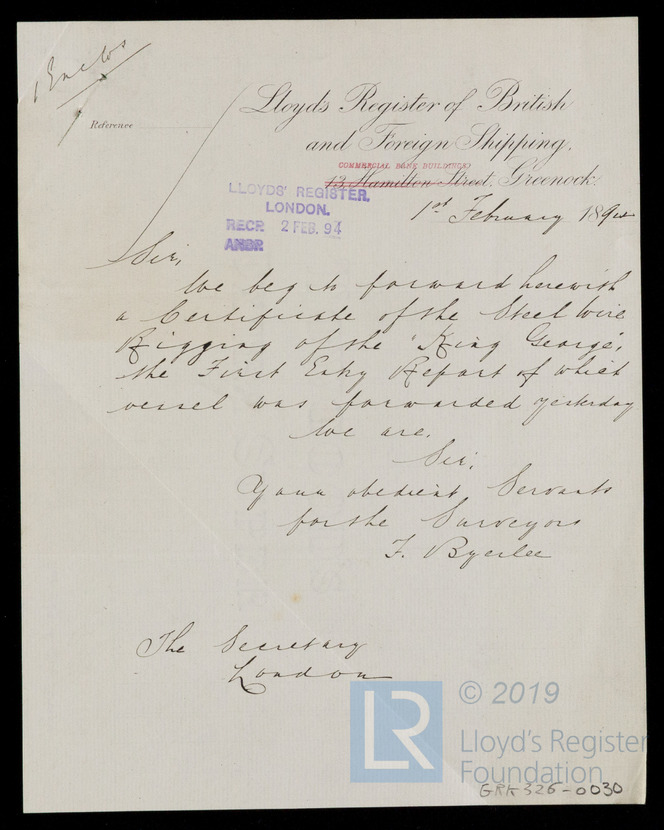 1 Enclos
Reference
Lloyds Register of British
and Foreign Shipping.
COMMERCIAL BANK BUILDINGS
13, Hamilton Street, Greenock.
LLOYDS' REGISTER,
LONDON.
RECP. 2 FEB. 94
ANSR.
1st February 1894
Sir,
We beg to forward herewith
a Certificate of the Steel Wire
Rigging of the 'King George',
the First Entry Report of which
vessel was forwarded yesterday
We are,
Sir,
Your obedient Servants
for the Surveyors
F. Byerlee
The Secretary
London
LR
© 2019
Lloyd's Register
Foundation
GRK326-0030